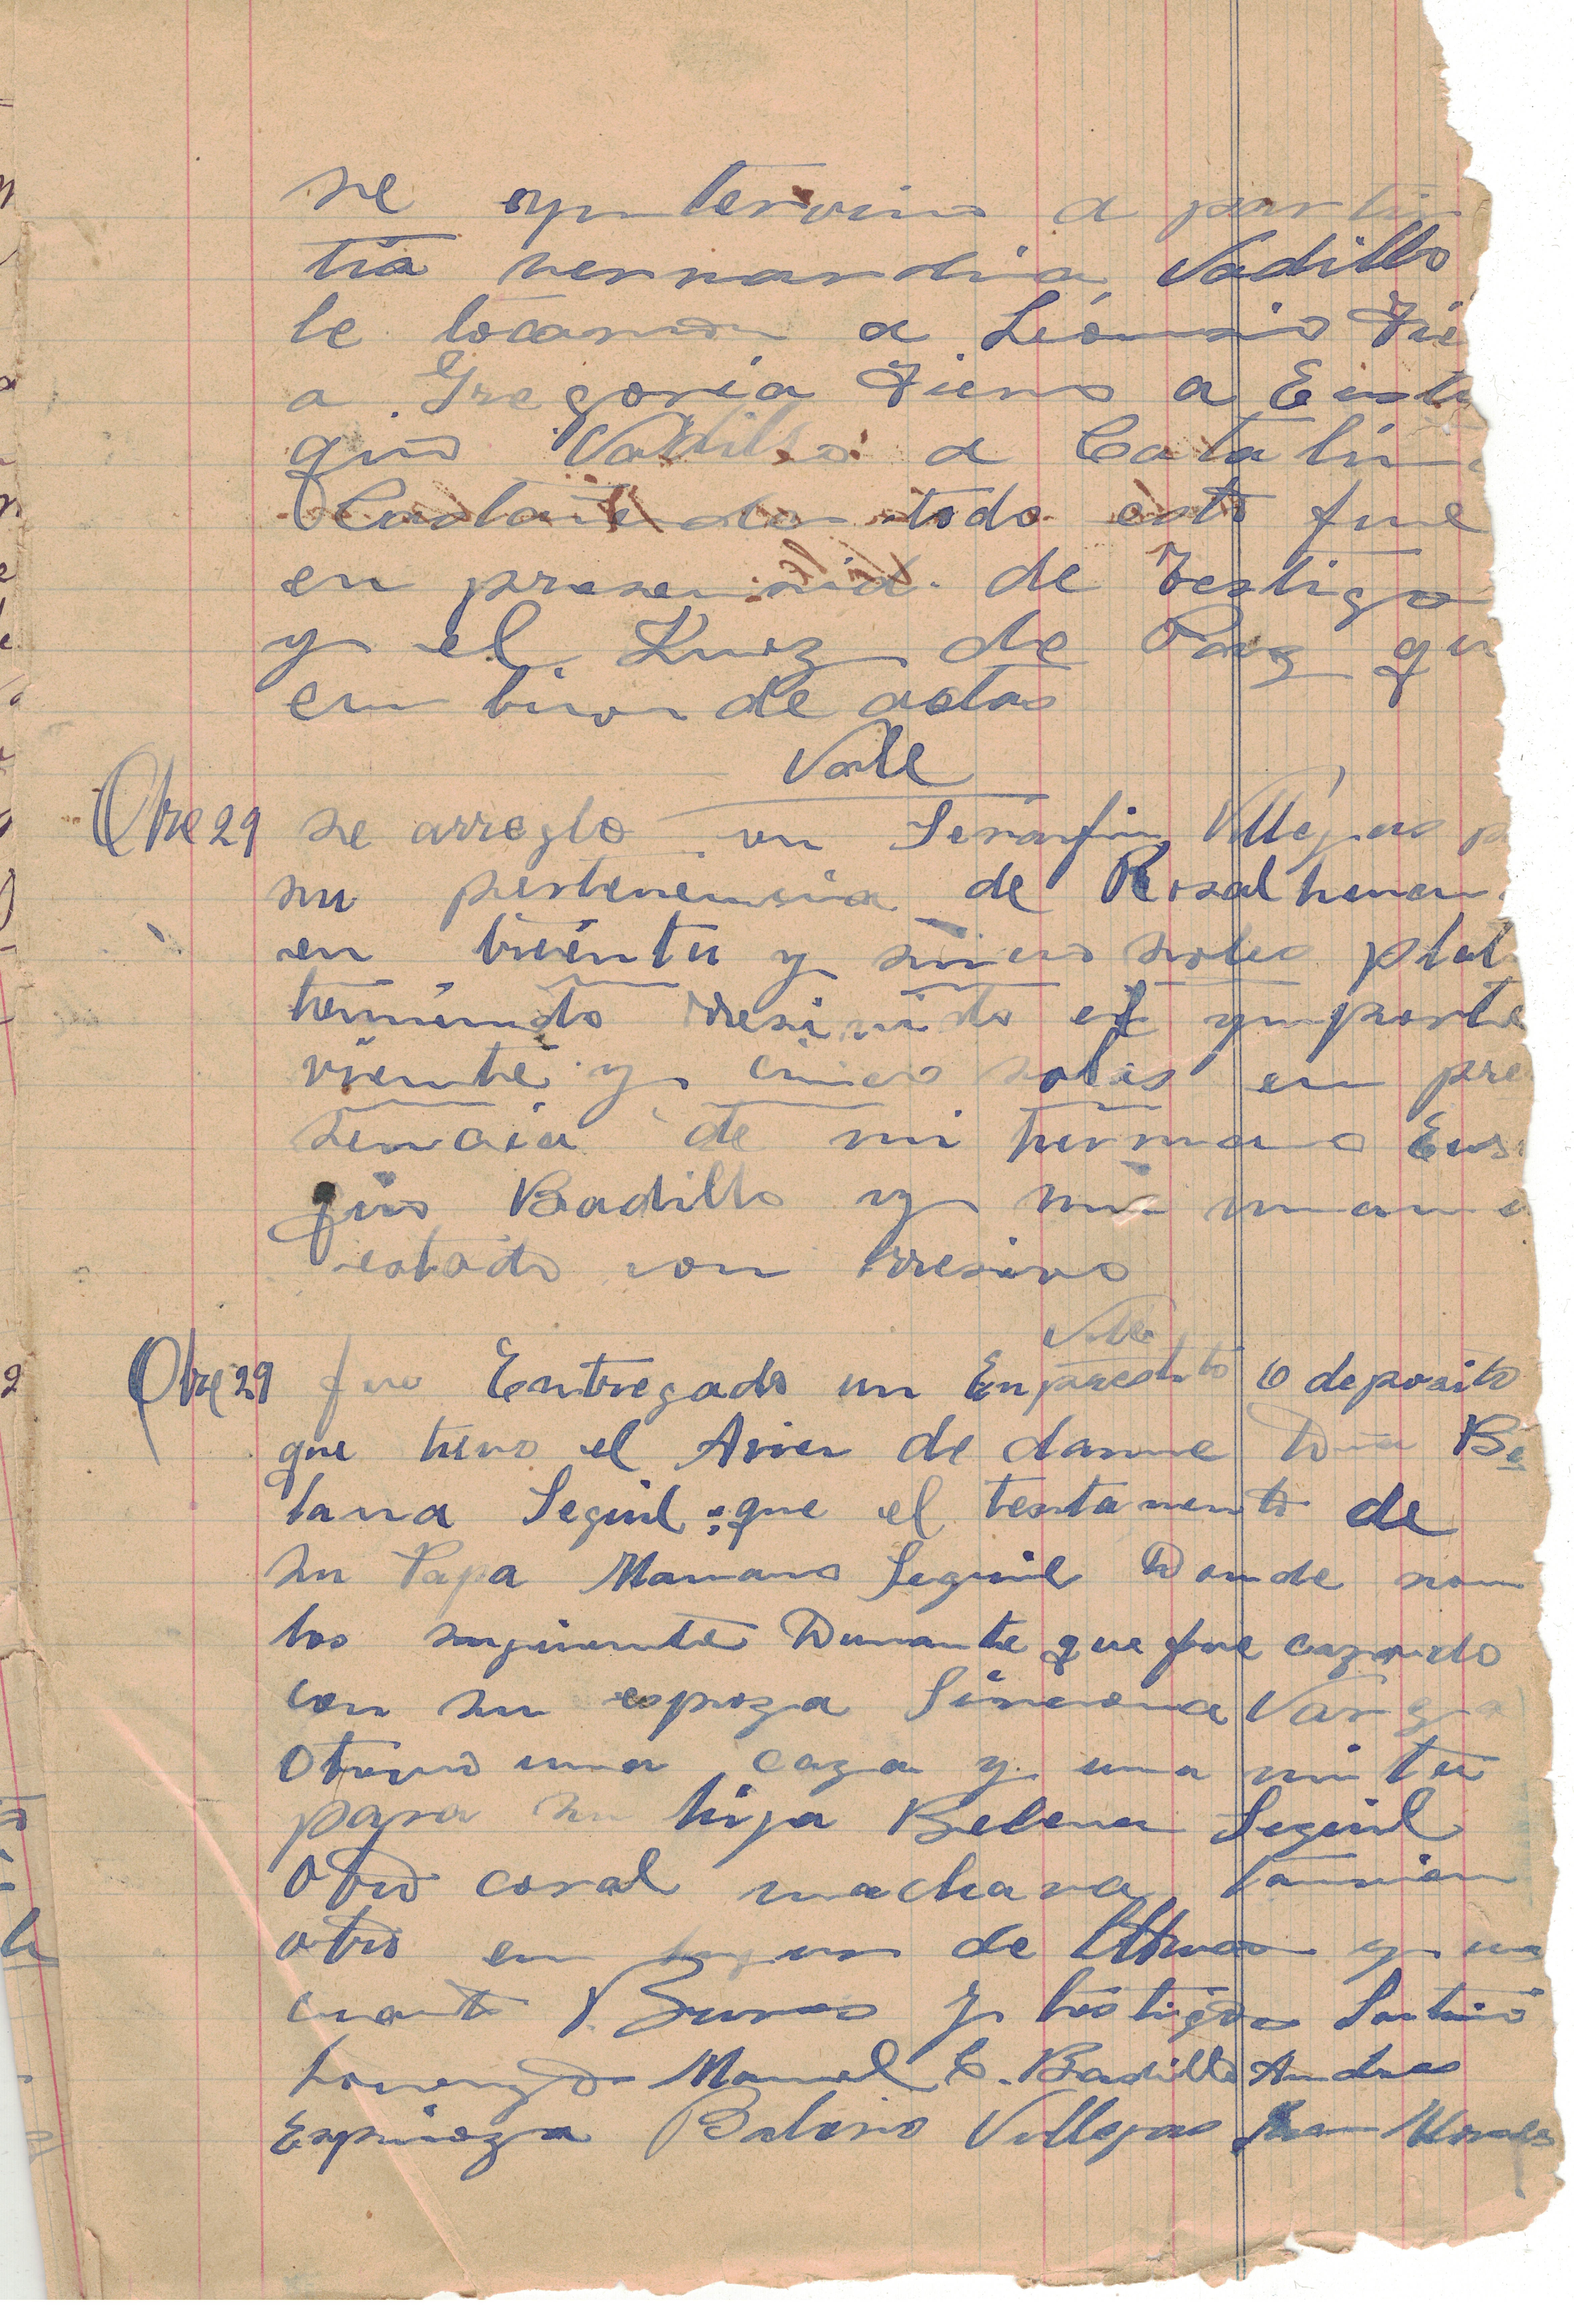 se yntervino a partir
tia vernardia Vadillo
le tocaron a Leoncio Fie
a Gregoria Fierro a Eusta
quio Vadillo a Catalin
Castañeda todo esto fue
en presencia de testigo
y el Juez de Paz qu
en livro de actas
Vale
Otre 29 se arreglo con Serafin Villegas p
su pertenencia de Rosal
en treinta y sinco soles plat
teniendo rresivido el ymporte
viente y cinco soles en pre
sencia de mi hermano Eus
quio Badillo y mi mama
estado con rresivo
Vale
Otre 29 fue Entregado un Enprestito o deposito
que tuvo el de danne Be
lana Seguil que el testamento de
su Papa Mariano Seguil Donde son
los siguiente Durante que fue cazado
con su espoza Simeona Varga
Otorvo una caza y una mita
para su hija Belena Seguil
Otro coral machava tamvien
otro en de y un
cuarto Burros y testigos
Lorenzo Manuel C. Badillo Andres
Espinoza Balerio Villegas Juan Morales